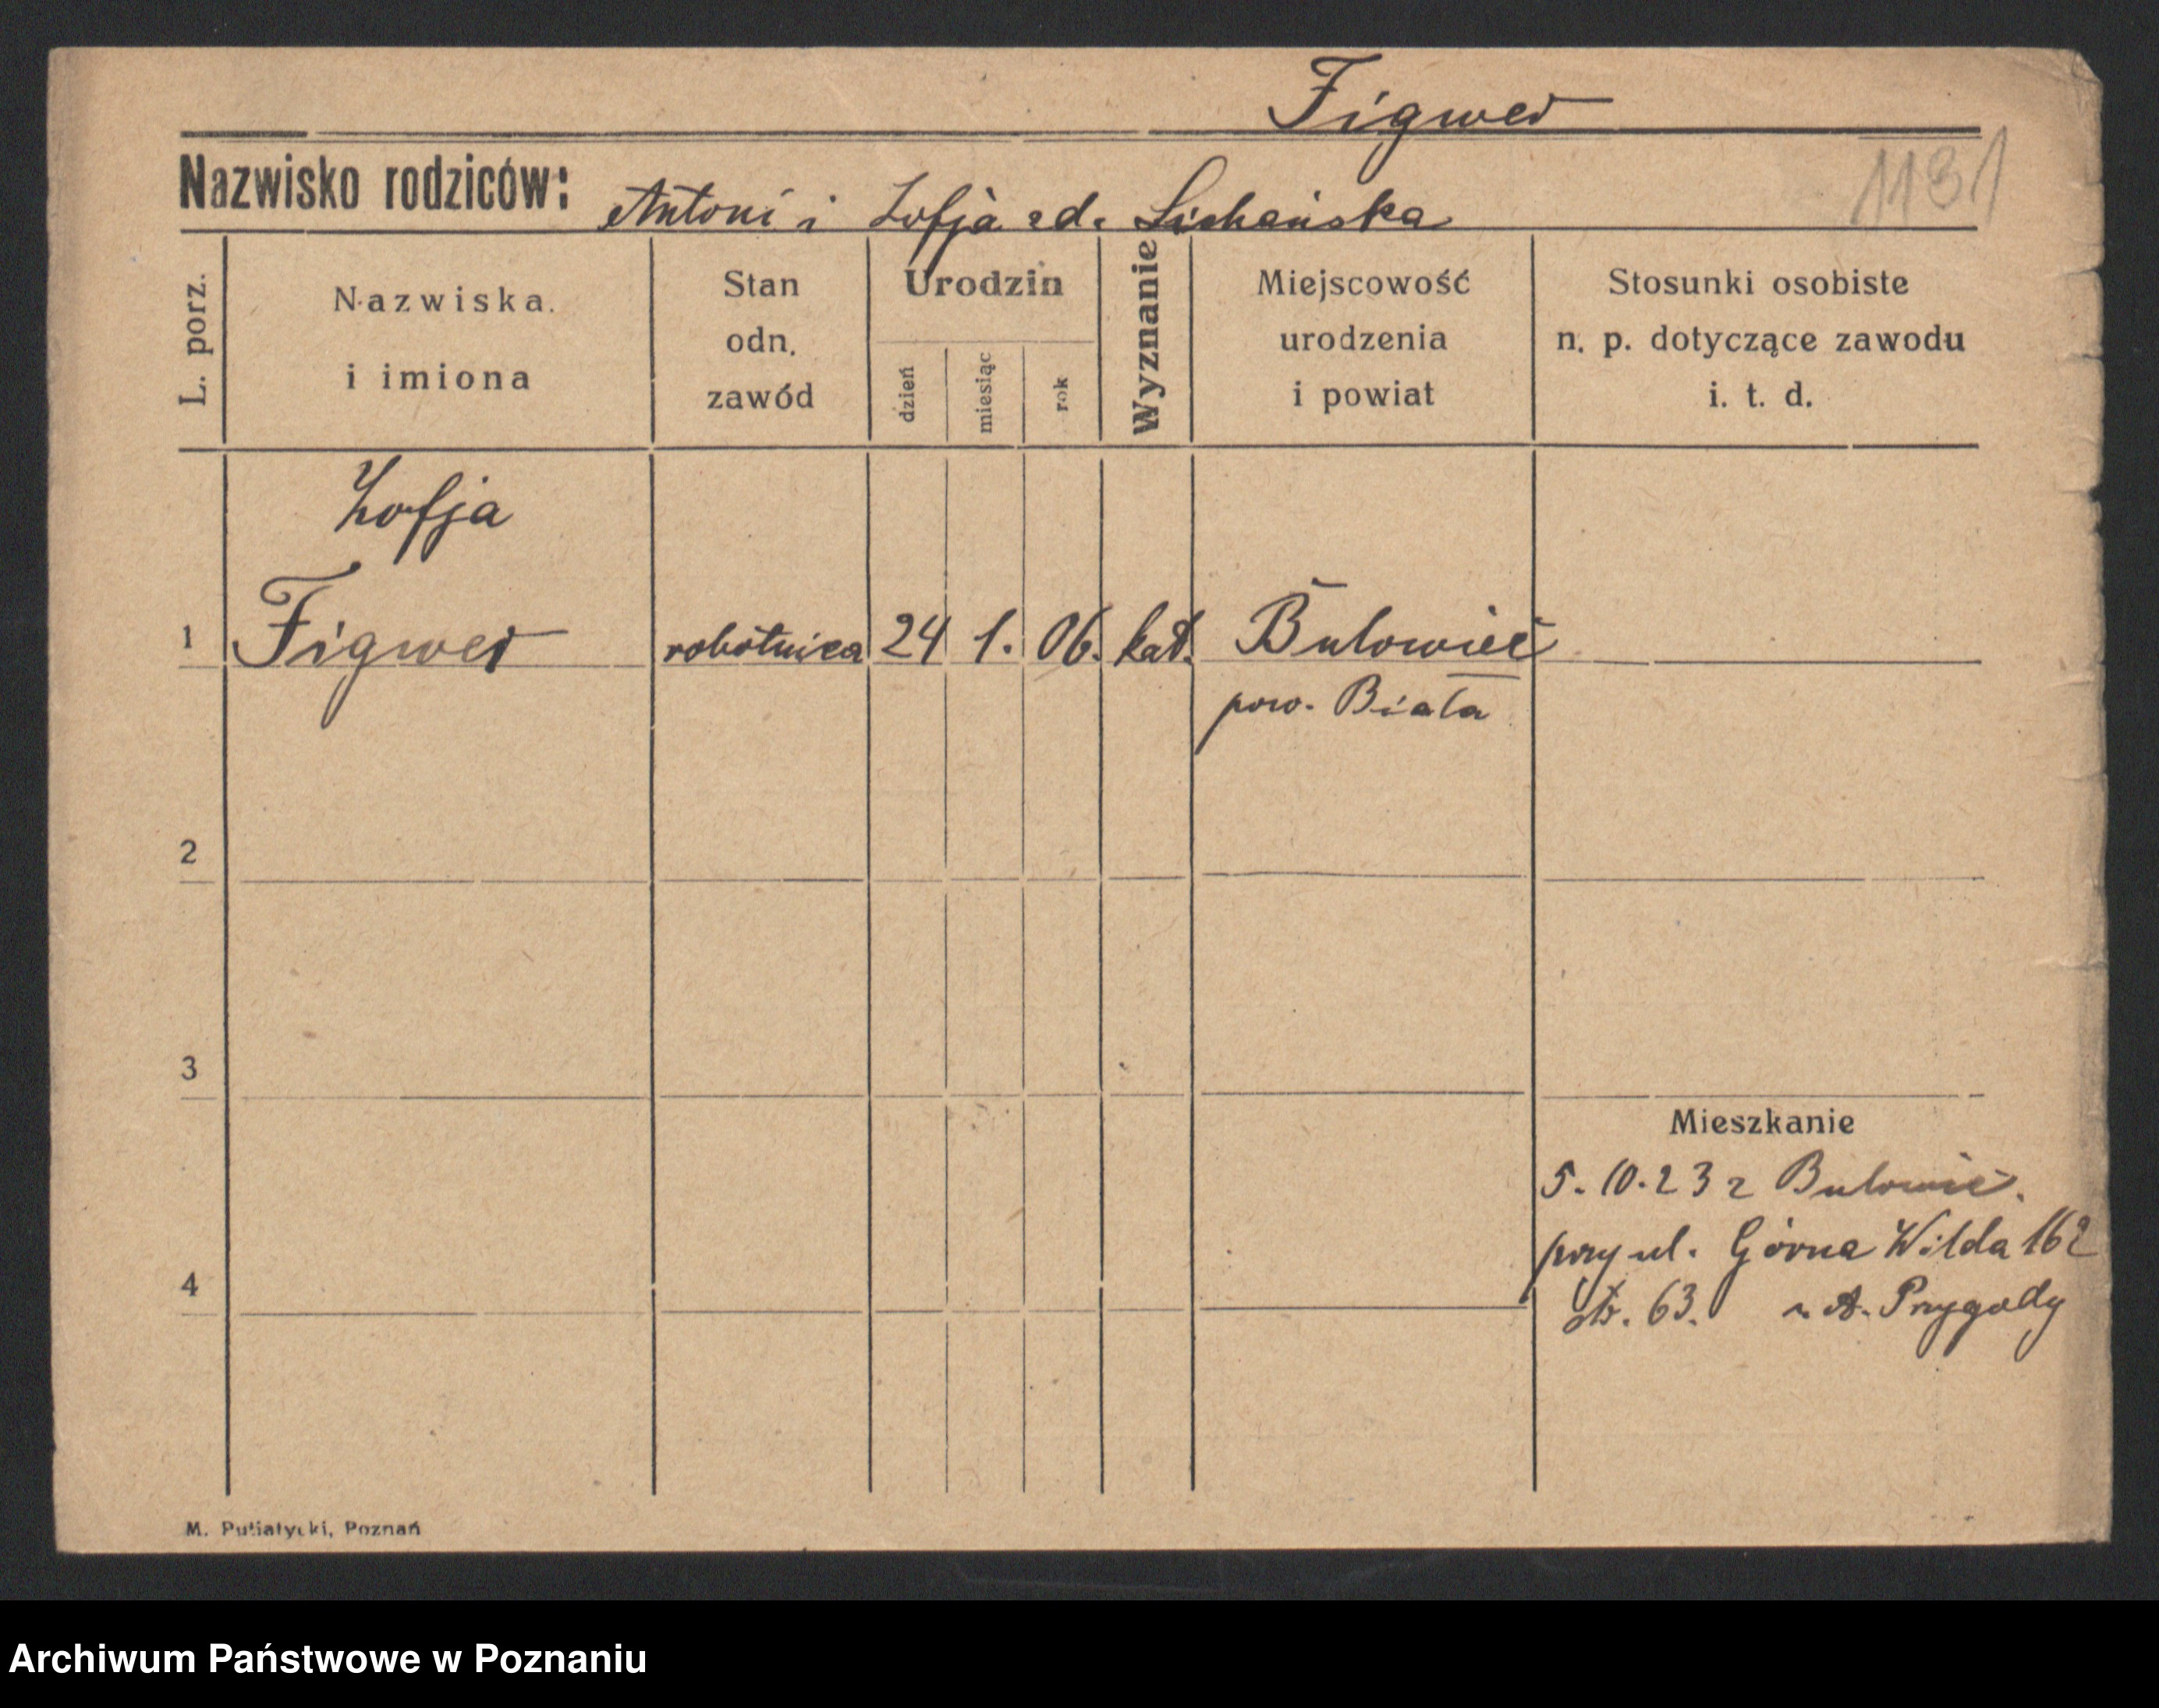 Figwer
1131
Nazwisko rodziców: Antoni i Zofja zd. Lichańska
L. porz.
Nazwiska.
i imiona
Stan
odn.
zawód
Urodzin
dzień
miesiąc
rok
Wyznanie
Miejscowość
urodzenia
i powiat
Stosunki osobiste
n. p. dotyczące zawodu
i. t. d.
Zofja
1 Figwer robotnica 24 1. 06. kat. Bulowice
pow. Biała
2
3
Mieszkanie
5. 10. 23 z Bulowic.
przy ul. Górna Wilda 162
str. 63. u A. Przygody
4
M. Putiatycki, Poznań
Archiwum Państwowe w Poznaniu